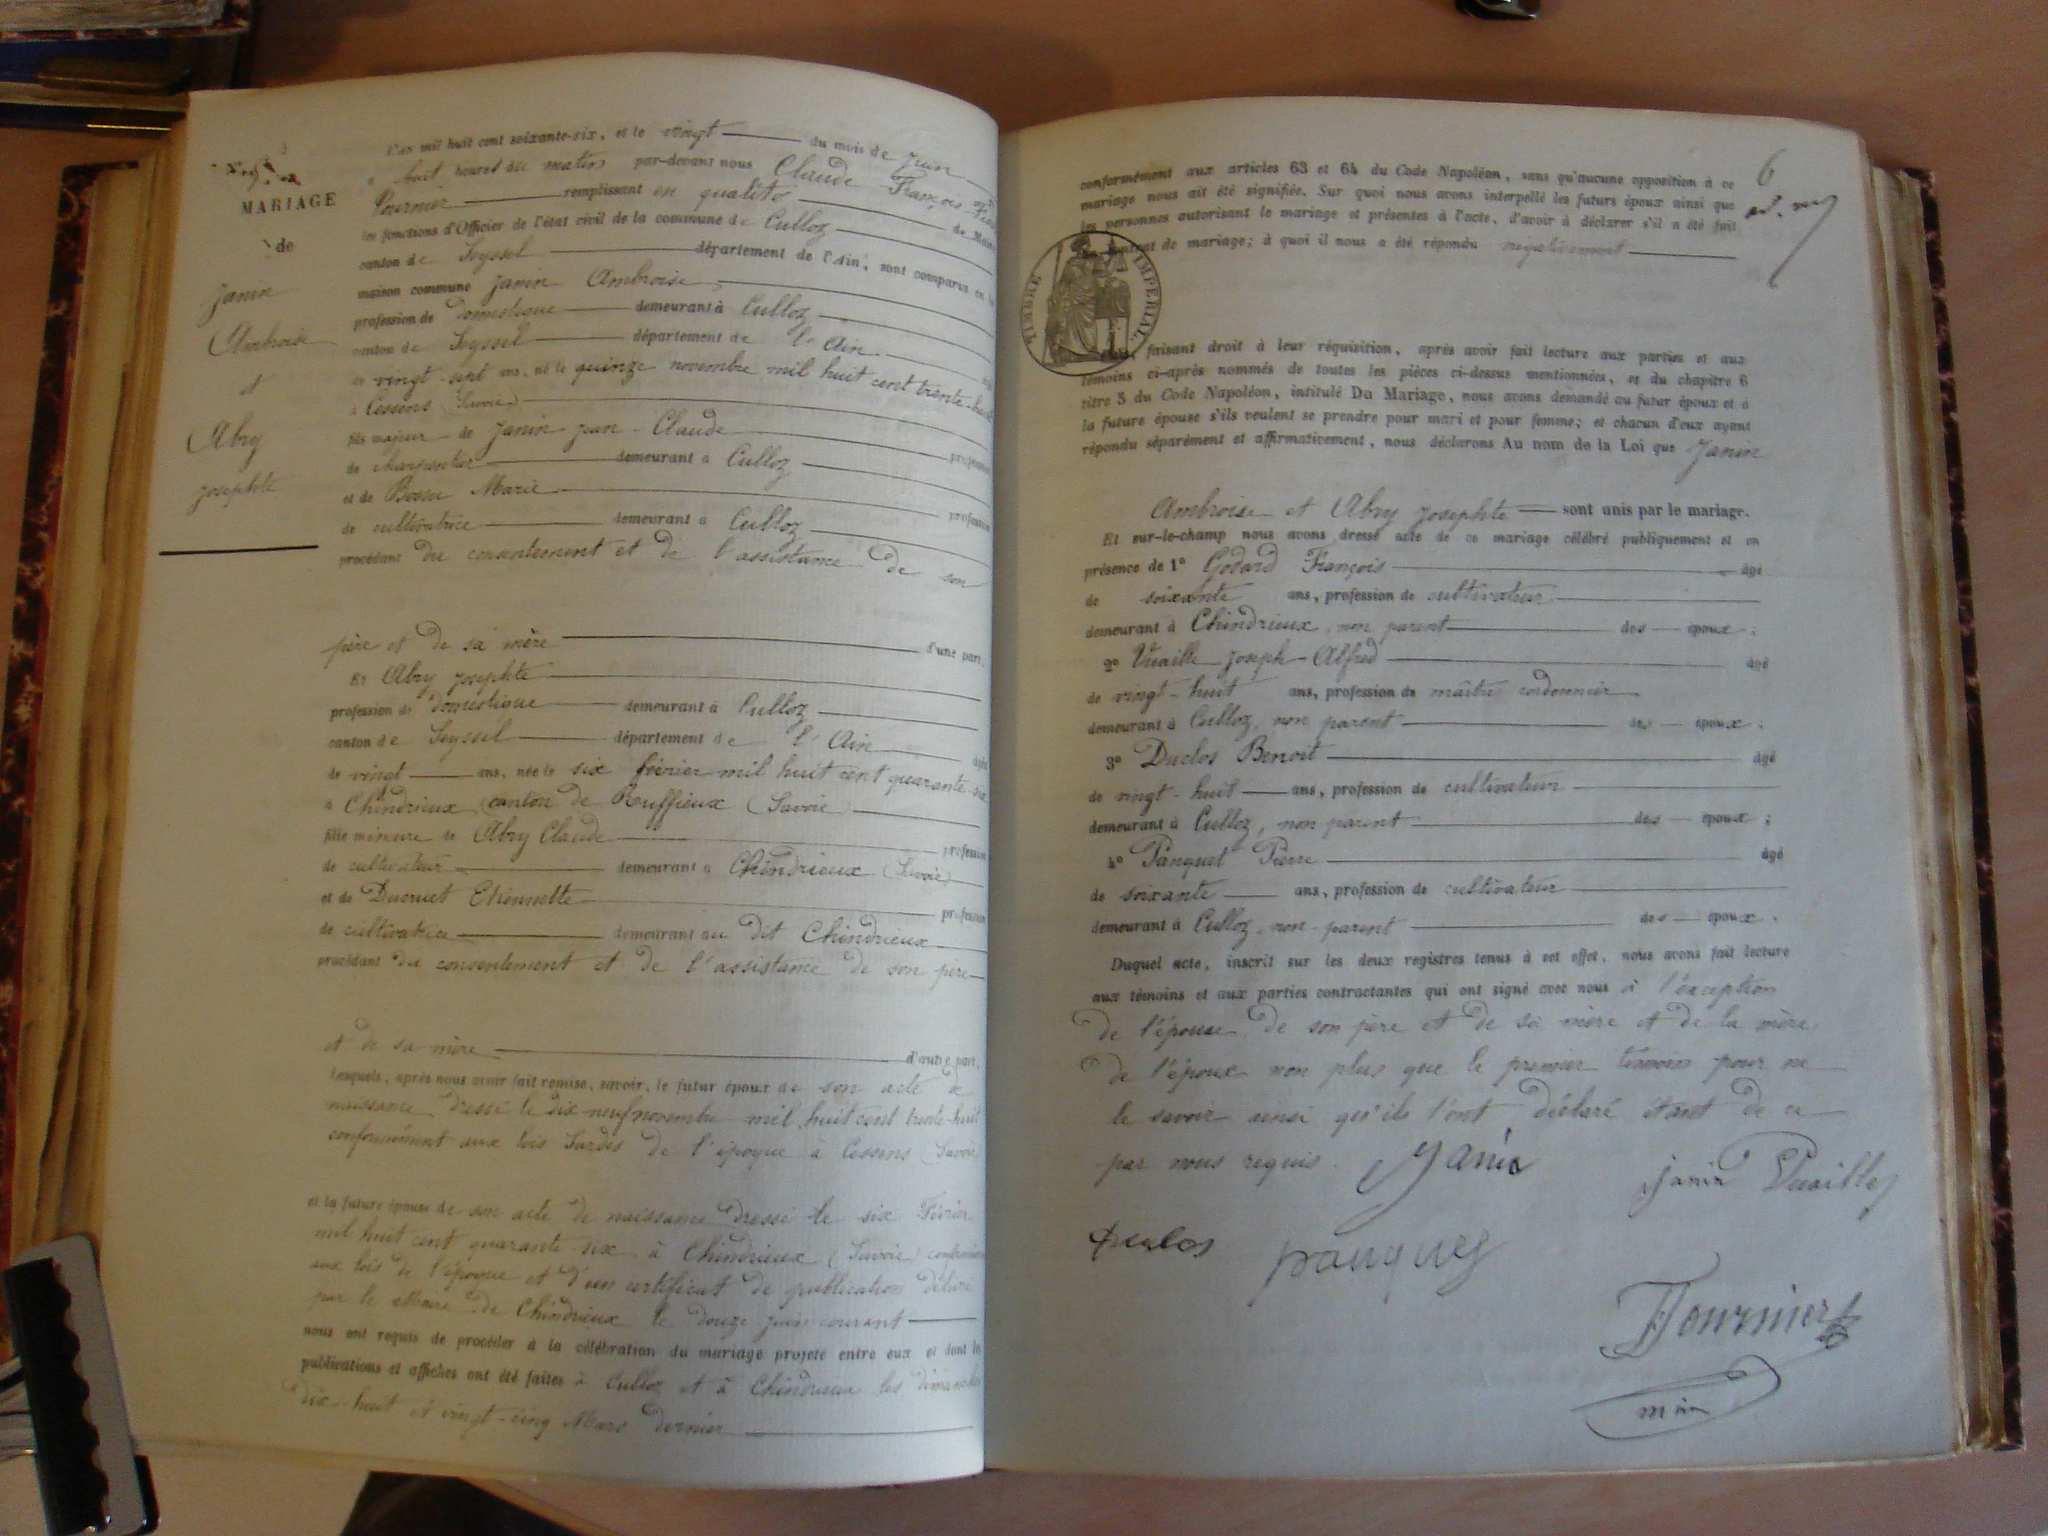 MARIAGE
de
Janin
Ambroise
et
Abry
Josephte
L'an mil huit cent soixante-six, et le vingt du mois de Juin
à huit heures du matin par-devant nous Claude François
Fournier remplissant en qualité de Maire
les fonctions d'Officier de l'état civil de la commune de Culloz
canton de Seyssel département de l'Ain, sont comparus en la
maison commune Janin Ambroise,
profession de domestique demeurant à Culloz
canton de Seyssel département de l'Ain
de vingt-sept ans, né le quinze novembre mil huit cent trente-huit
à Cessens (Savoie)
fils majeur de Janin Jean-Claude profession
de charpentier demeurant à Culloz
et de Marie profession
de cultivatrice demeurant à Culloz
procédant du consentement et de l'assistance de son
père et de sa mère d'une part.
Et Abry Josephte
profession de domestique demeurant à Culloz
canton de Seyssel département de l'Ain âgée
de vingt ans, née le six février mil huit cent quarante-six
à Chindrieux (canton de Ruffieux (Savoie)
fille mineure de Abry Claude profession
de cultivateur demeurant à Chindrieux (Savoie)
et de Ducruet Etiennette profession
de cultivatrice demeurant au dit Chindrieux
procédant du consentement et de l'assistance de son père
et de sa mère d'autre part.
Lesquels, après nous avoir fait remise, savoir, le futur époux de son acte de
naissance dressé le dix neuf novembre mil huit cent trente-huit
conformément aux lois Sardes de l'époque à Cessens (Savoie)
et la future épouse de son acte de naissance dressé le six Février
mil huit cent quarante-six à Chindrieux (Savoie)
aux lois de l'époque et d'un certificat de publication délivré
par le Maire de Chindrieux le douze juin courant
nous ont requis de procéder à la célébration du mariage projeté entre eux et dont les
publications et affiches ont été faites à Culloz et à Chindrieux les dimanches
dix-huit et vingt-cinq Mars dernier
6
conformément aux articles 63 et 64 du Code Napoléon, sans qu'aucune opposition à ce
mariage nous ait été signifiée. Sur quoi nous avons interpellé les futurs époux ainsi que
les personnes autorisant le mariage et présentes à l'acte, d'avoir à déclarer s'il a été fait
contrat de mariage; à quoi il nous a été répondu négativement
TIMBRE IMPERIAL
faisant droit à leur réquisition, après avoir fait lecture aux parties et aux
témoins ci-après nommés de toutes les pièces ci-dessus mentionnées, et du chapitre 6
titre 5 du Code Napoléon, intitulé Du Mariage, nous avons demandé au futur époux et à
la future épouse s'ils veulent se prendre pour mari et pour femme; et chacun d'eux ayant
répondu séparément et affirmativement, nous déclarons Au nom de la Loi que Janin
Ambroise et Abry Josephte sont unis par le mariage.
Et sur-le-champ nous avons dressé acte de ce mariage célébré publiquement et en
présence de 1° Godard François âgé
de soixante ans, profession de cultivateur
demeurant à Chindrieux, non parent des époux;
2° Vuaille Joseph-Alfred âgé
de vingt-huit ans, profession de maître cordonnier
demeurant à Culloz, non parent des époux;
3° Duclos Benoit âgé
de vingt-huit ans, profession de cultivateur
demeurant à Culloz, non parent des époux;
4° Panquet Pierre âgé
de soixante ans, profession de cultivateur
demeurant à Culloz, non-parent des époux.
Duquel acte, inscrit sur les deux registres tenus à cet effet, nous avons fait lecture
aux témoins et aux parties contractantes qui ont signé avec nous à l'exception
de l'épouse de son père et de sa mère et de la mère
de l'époux non plus que le premier témoin pour ne
le savoir ainsi qu'ils l'ont déclaré étant de ce
par nous requis.
Janin
janin Vuaille
duclos
panquet
Fournier